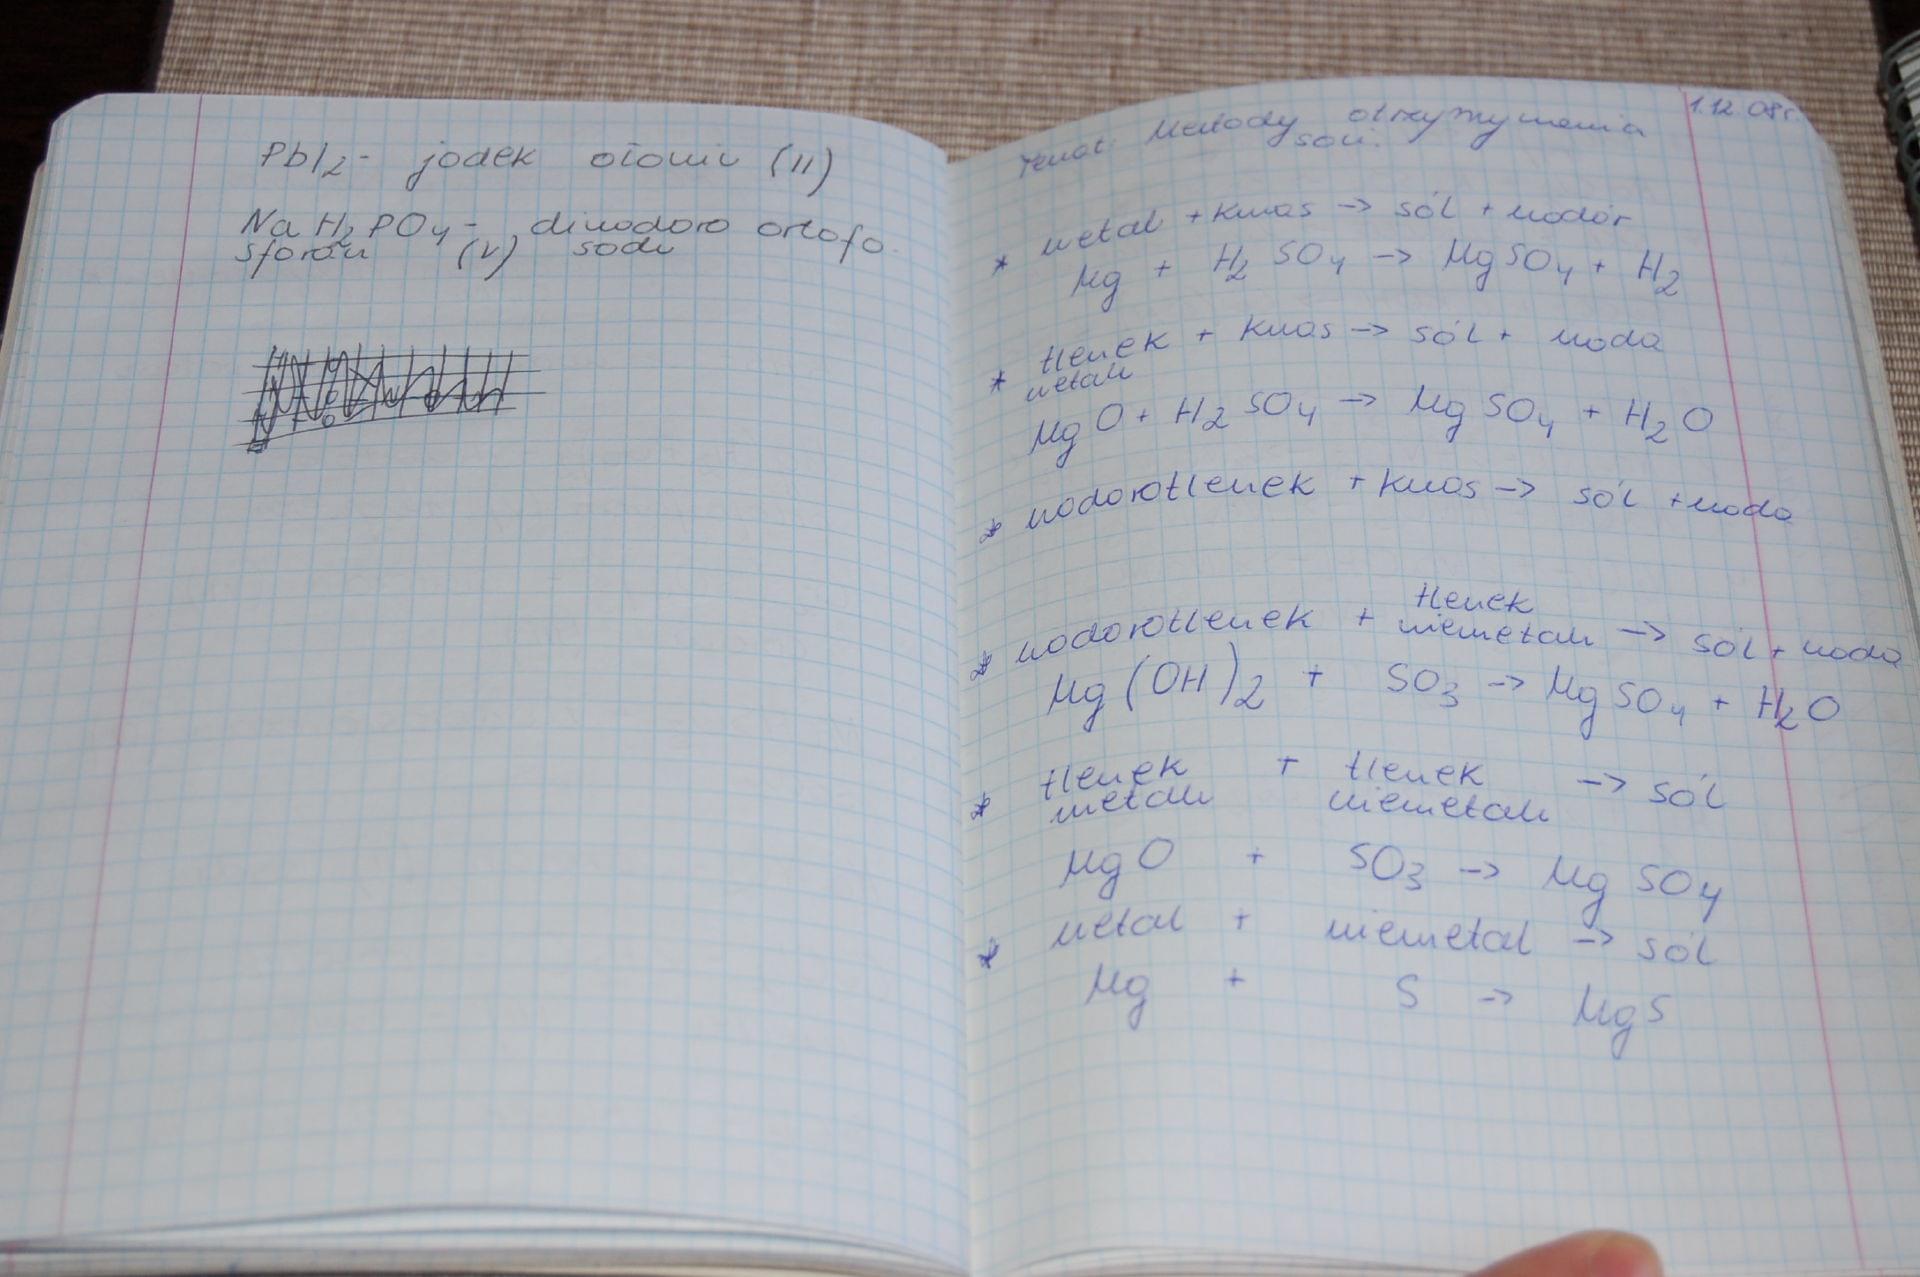 PbI2 - jodek ołowiu (II)
NaH2PO4 - diwodoro ortofo-
sforan (V) sodu
1.12.08r.
Temat: Metody otrzymywania
soli.
* metal + kwas -> sól + wodór
Mg + H2SO4 -> MgSO4 + H2
* tlenek + kwas -> sól + woda
metalu
MgO + H2SO4 -> MgSO4 + H2O
* wodorotlenek + kwas -> sól + woda
tlenek
* wodorotlenek + niemetalu -> sól + woda
Mg(OH)2 + SO3 -> MgSO4 + H2O
* tlenek + tlenek -> sól
metalu niemetalu
MgO + SO3 -> MgSO4
* metal + niemetal -> sól
Mg + S -> MgS